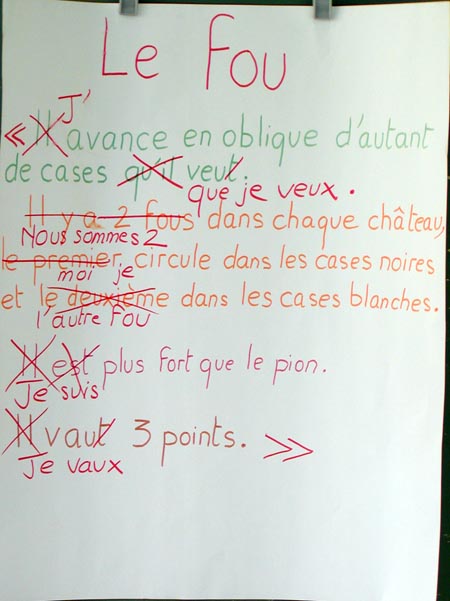 Le Fou
J'
« Il avance en oblique d'autant
de cases qu'il veut.
que je veux.
Il y a 2 fous dans chaque château,
Nous sommes 2
le premier circule dans les cases noires
moi je
et le deuxième dans les cases blanches.
l'autre fou
Il est plus fort que le pion.
Je suis
Il vaut 3 points. »
Je vaux